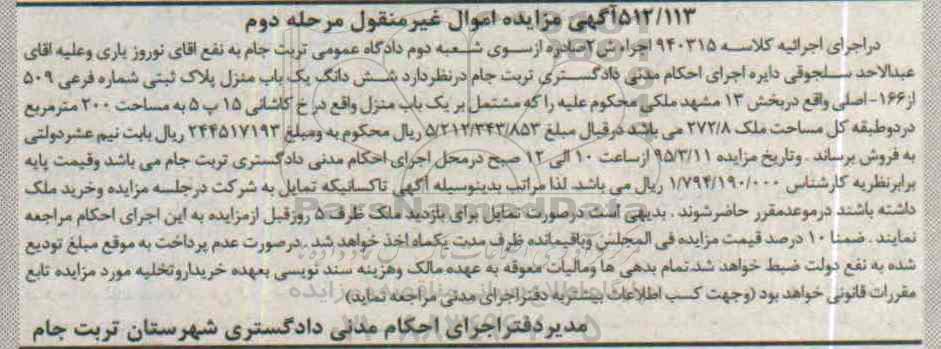 ۵۱۲/۱۱۳آگهی مزایده اموال غیرمنقول مرحله دوم
دراجرای اجرائیه کلاسه ۹۴۰۳۱۵ اجراء ش۲صادره ازسوی شعبه دوم دادگاه عمومی تربت جام به نفع اقای نوروز یاری وعلیه اقای
عبدالاحد سلجوقی دایره اجرای احکام مدنی دادگستری تربت جام درنظردارد شش دانگ یک باب منزل پلاک ثبتی شماره فرعی ۵۰۹
از۱۶۶-اصلی واقع دربخش ۱۳ مشهد ملکی محکوم علیه را که مشتمل بر یک باب منزل واقع در خ کاشانی ۱۵ پ ۵ به مساحت ۲۰۰ مترمربع
دردوطبقه کل مساحت ملک ۲۷۲/۸ می باشد درقبال مبلغ ۵/۲۱۲/۳۴۳/۸۵۳ ریال محکوم به ومبلغ ۲۴۴۵۱۷۱۹۳ ریال بابت نیم عشردولتی
به فروش برساند . وتاریخ مزایده ۹۵/۳/۱۱ ازساعت ۱۰ الی ۱۲ صبح درمحل اجرای احکام مدنی دادگستری تربت جام می باشد وقیمت پایه
برابرنظریه کارشناس ۱/۷۹۴/۱۹۰/۰۰۰ ریال می باشد. لذا مراتب بدینوسیله آگهی تاکسانیکه تمایل به شرکت درجلسه مزایده وخرید ملک
داشته باشند درموعدمقرر حاضرشوند . بدیهی است درصورت تمایل برای بازدید ملک ظرف ۵ روزقبل ازمزایده به این اجرای احکام مراجعه
نمایند . ضمنا ۱۰ درصد قیمت مزایده فی المجلس وباقیمانده ظرف مدت یکماه اخذ خواهد شد .درصورت عدم پرداخت به موقع مبلغ تودیع
شده به نفع دولت ضبط خواهد شد.تمام بدهی ها ومالیات معوقه به عهده مالک وهزینه سند نویسی بعهده خریداروتخلیه مورد مزایده تابع
مقررات قانونی خواهد بود (وجهت کسب اطلاعات بیشتربه دفتراجرای مدنی مراجعه نماید)
مدیردفتراجرای احکام مدنی دادگستری شهرستان تربت جام
ParsNamadData